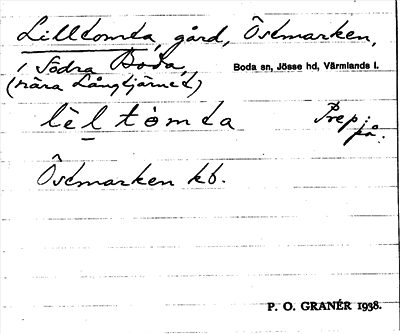 Lilltomta, gård, Östmarken,
i Södra Boda,
Boda sn, Jösse hd, Värmlands l.
(nära Långtjärnet)
lèltòmta Prep.: på.
Östmarken kb.
P. O. GRANÉR 1938.